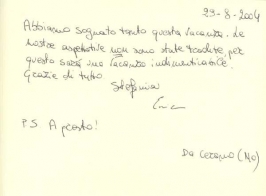 29-8-2004
Abbiamo sognato tanto questa vacanza. Le
nostre aspettative non sono state tradite, per
questo sarà una vacanza indimenticabile.
Grazie di tutto
Stefania
P.S. A presto!
Da Cesena (No)